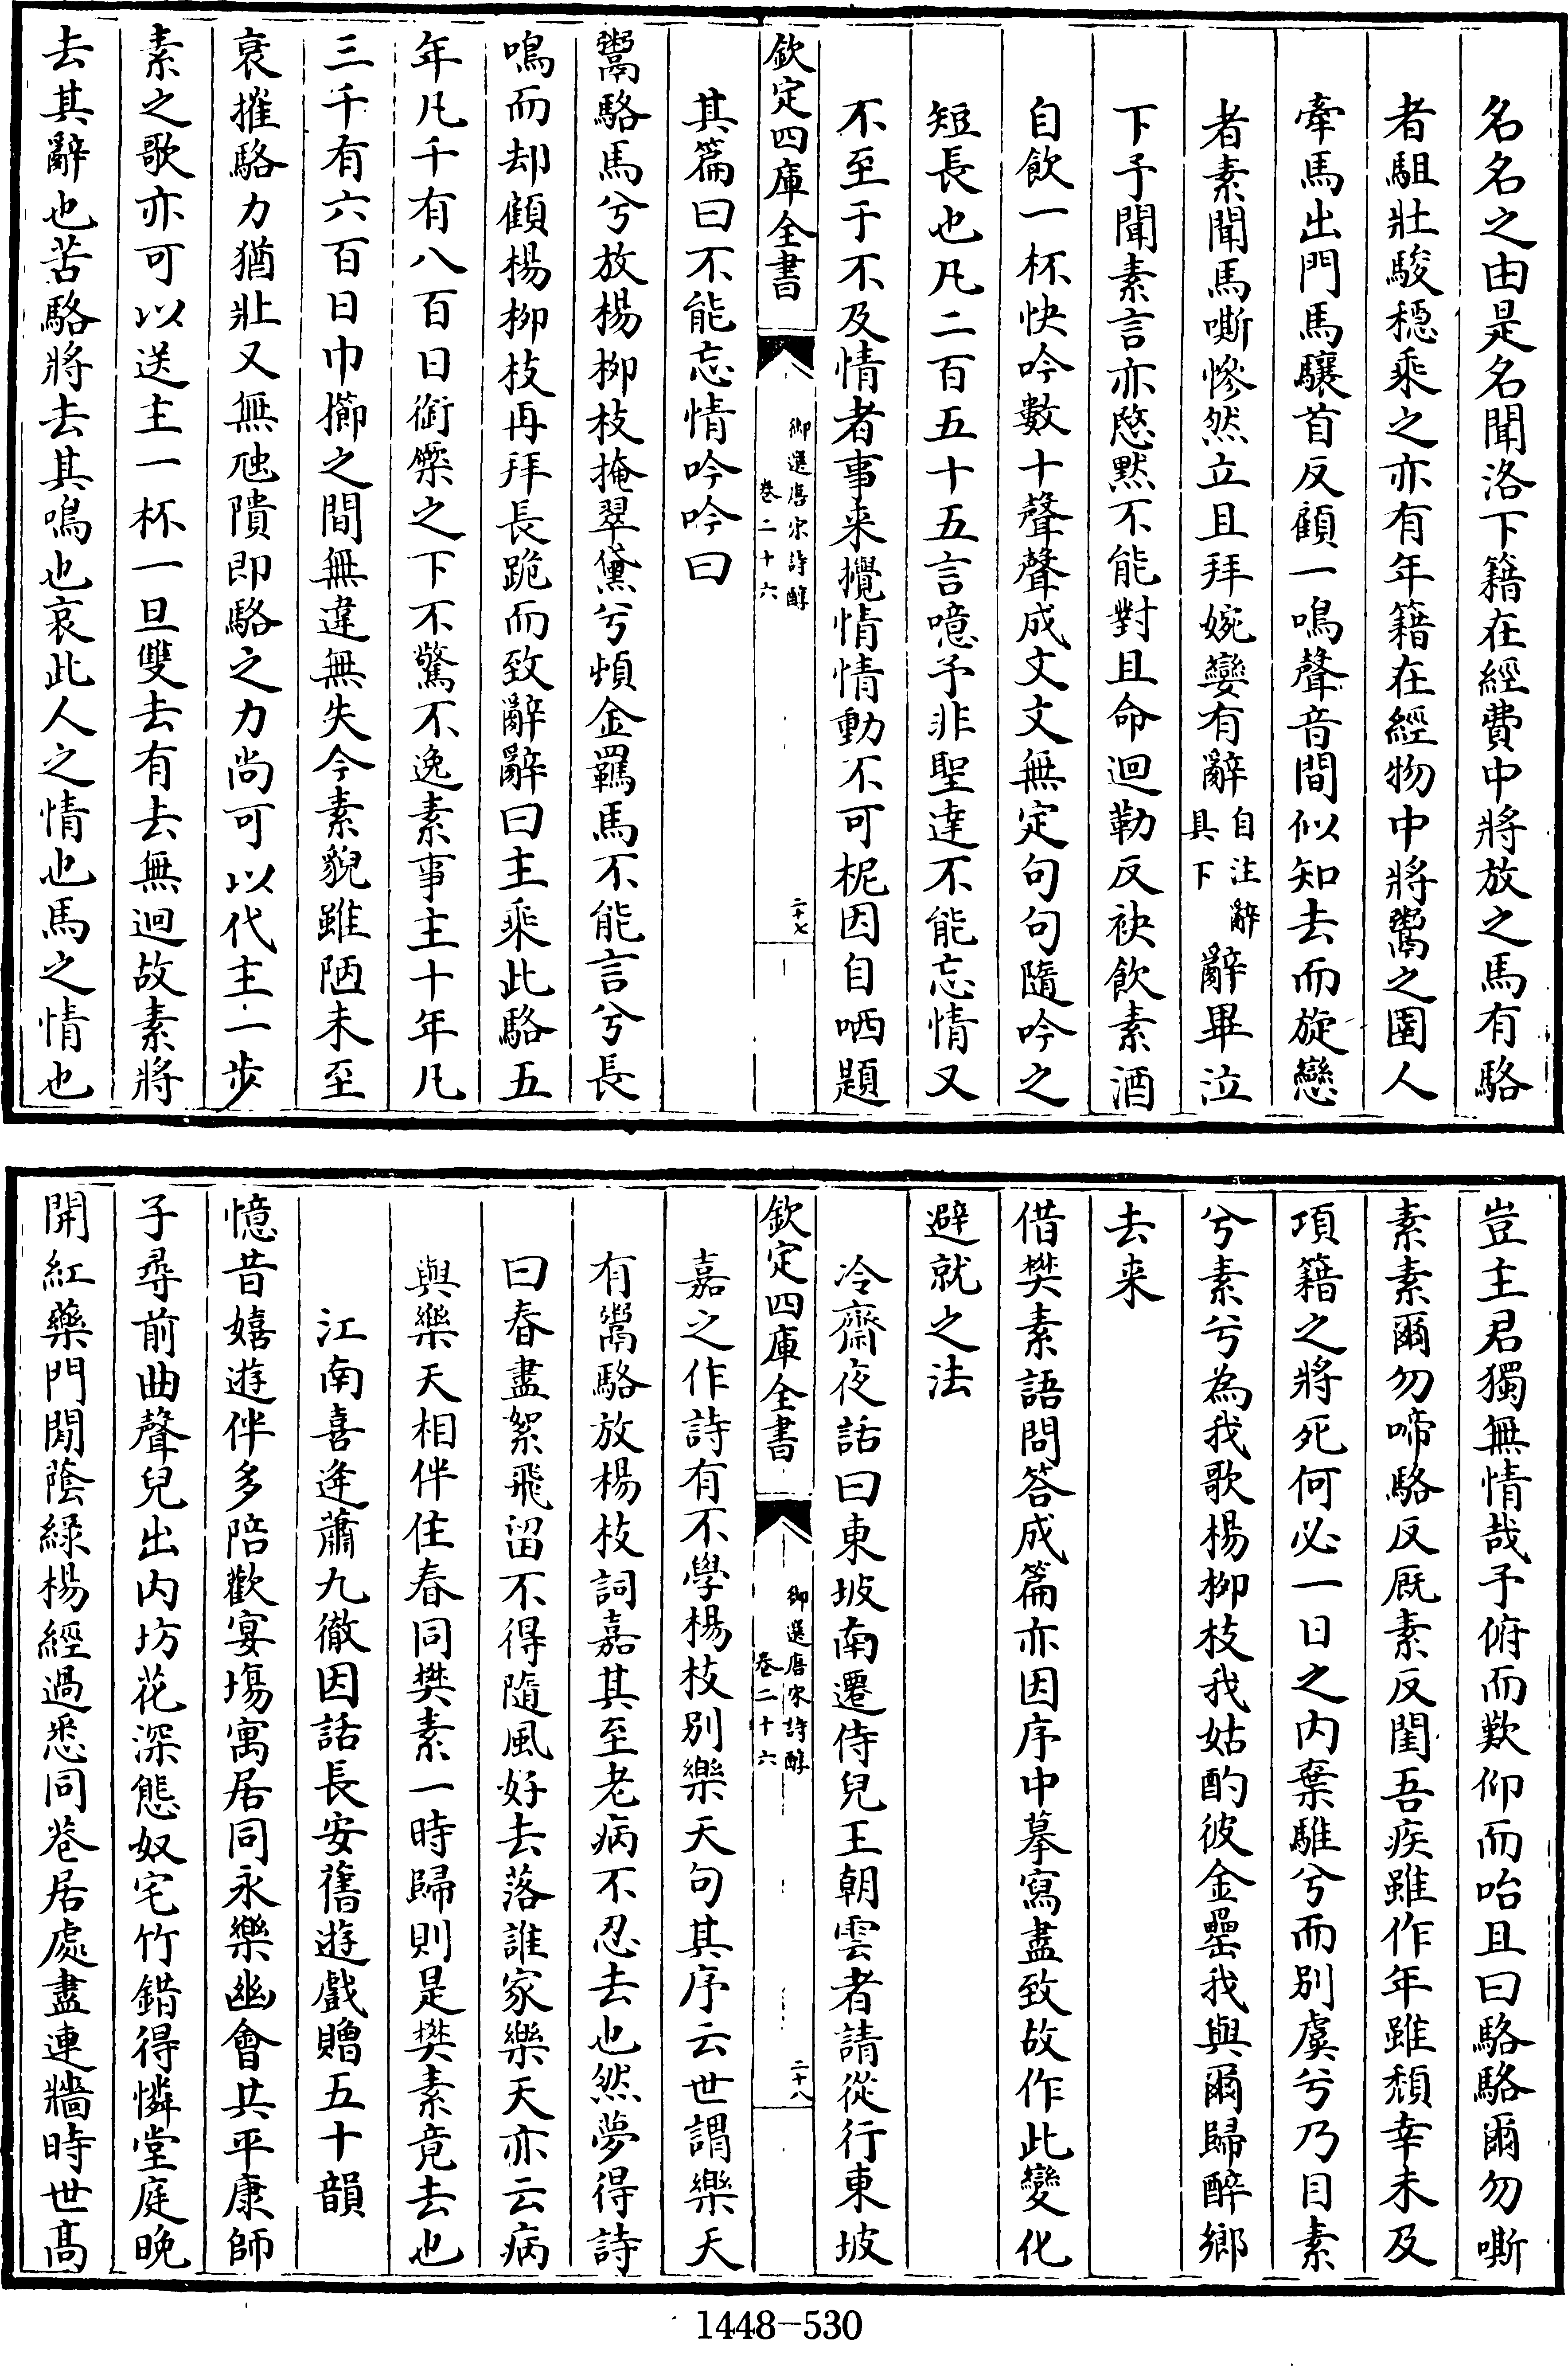 名名之由是名聞洛下籍在經費中將放之馬有駱
者駔壯駿穩乘之亦有年籍在經物中將鬻之圉人
牽馬出門馬驤首反顧一鳴聲音間似知去而旋戀
者素聞馬嘶慘然立且拜婉孌有辭自注辭具下辭畢泣
下予聞素言亦愍默不能對且命迴勒反袂飲素酒
自飲一杯快吟數十聲聲成文文無定句句隨吟之
短長也凡二百五十五言噫予非聖達不能忘情又
不至于不及情者事来攪情情動不可柅因自哂題
欽定四庫全書 御選唐宋詩醇 卷二十六 二十七
其篇曰不能忘情吟吟曰
鬻駱馬兮放楊柳枝掩翠黛兮頓金羈馬不能言兮長
鳴而却顧楊柳枝再拜長跪而致辭辭曰主乘此駱五
年凡千有八百日銜橜之下不驚不逸素事主十年凡
三千有六百日巾櫛之間無違無失今素貌雖陋未至
衰摧駱力猶壯又無虺隤即駱之力尚可以代主一步
素之歌亦可以送主一杯一旦雙去有去無迴故素將
去其辭也苦駱將去其鳴也哀此人之情也馬之情也
豈主君獨無情哉予俯而歎仰而咍且曰駱駱爾勿嘶
素素爾勿啼駱反廐素反閨吾疾雖作年雖頹幸未及
項籍之將死何必一日之内棄騅兮而别虞兮乃目素
兮素兮為我歌楊柳枝我姑酌彼金罍我與爾歸醉鄉
去来
借樊素語問答成篇亦因序中摹寫盡致故作此變化
避就之法
冷齋夜話曰東坡南遷侍兒王朝雲者請從行東坡
欽定四庫全書 御選唐宋詩醇 卷二十六 二十八
嘉之作詩有不學楊枝别樂天句其序云世謂樂天
有鬻駱放楊枝詞嘉其至老病不忍去也然夢得詩
曰春盡絮飛留不得隨風好去落誰家樂天亦云病
與樂天相伴住春同樊素一時歸則是樊素竟去也
江南喜逢蕭九徹因話長安舊遊戲贈五十韻
憶昔嬉遊伴多陪歡宴塲寓居同永樂幽會共平康師
子尋前曲聲兒出内坊花深態奴宅竹錯得憐堂庭晚
開紅藥門閒蔭緑楊經過悉同巷居處盡連牆時世髙
1448-530